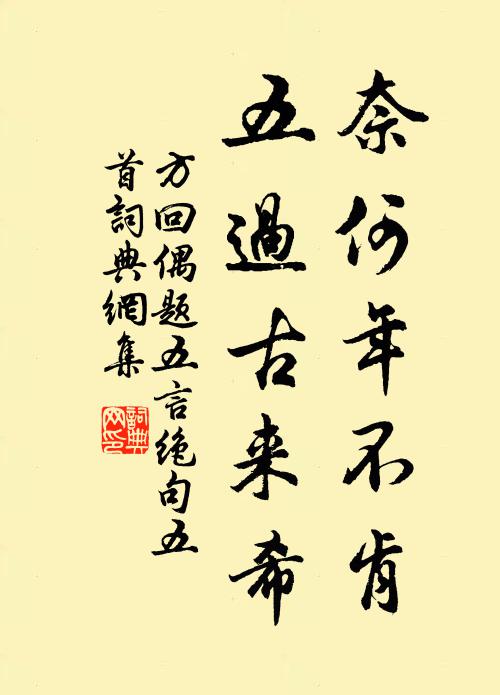 奈何年不肯
五過古来希
方回偶题五言绝句五
首詞典網集
詞典
网印